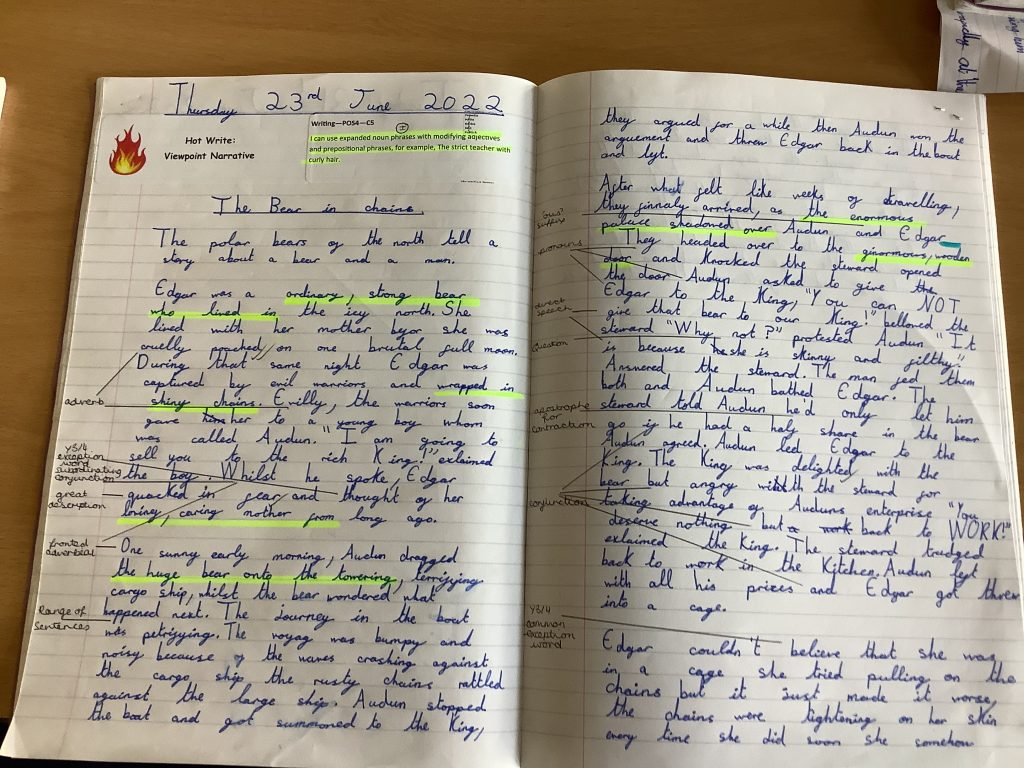 Thursday 23rd June 2022
Hot Write:
Viewpoint Narrative
Writing—POS4—C5
I can use expanded noun phrases with modifying adjectives
and prepositional phrases, for example, The strict teacher with
curly hair.
The Bear in chains
The polar bears of the north tell a
story about a bear and a man.
Edgar was a ordinary, strong bear
who lived in the icy north. She
lived with her mother before she was
cruelly poached, on one brutal full moon.
During that same night Edgar was
captured by evil warriors and wrapped in
shiny chains. Evilly, the warriors soon
adverb
gave her to a young boy whom
was called Audun. "I am going to
sell you to the rich King!" exlaimed
Y3/4
exception
word
subordinating
conjunction
the boy. Whilst he spoke, Edgar
great
description
quacked in fear and thought of her
loving, caring mother from long ago.
fronted
adverbial
One sunny early morning, Audun dragged
the huge bear onto the towering, terrifying
cargo ship, whilst the bear wondered what
Range of
sentences
happened next. The journey in the boat
was petrifying. The voyag was bumpy and
noisy because of the waves crashing against
the cargo ship the rusty chains rattled
against the large ship. Audun stopped
the boat and got summoned to the King,
they argued for a while then Audun won the
arguement and threw Edgar back in the boat
and lyt.
After what felt like weeks of travelling,
they finnaly arrived, as the enormous
'ous'
suffix
palace shadowed over Audun and Edgar
pronouns
They headed over to the ginormous, wooden
door and knocked the steward opened
the door Audun asked to give the
Edgar to the King, "You can NOT
direct
speech
give that bear to our King!" bellowed the
steward "Why not?" protested Audun "It
question
is because she is skinny and filthy"
Answered the steward. The man feed them
both and Audun bathed Edgar. The
steward told Audun he'd only let him
apostrophe
for
contraction
go if he had a haly share in the bear
Audun agreed. Audun led Edgar to the
King. The King was delighted with the
bear but angry with the steward for
conjunction
taking advantage of Auduns enterprise "You
deserve nothing but a work back to WORK!"
exlaimed the King. The steward trudged
back to work in the Kitchen. Audun left
with all his prizes and Edgar got threw
into a cage.
Y3/4
common
exception
word
Edgar couldn't believe that she was
in a cage she tried pulling on the
chains but it just made it worse,
the chains were tightening on her skin
every time she did soon she somehow